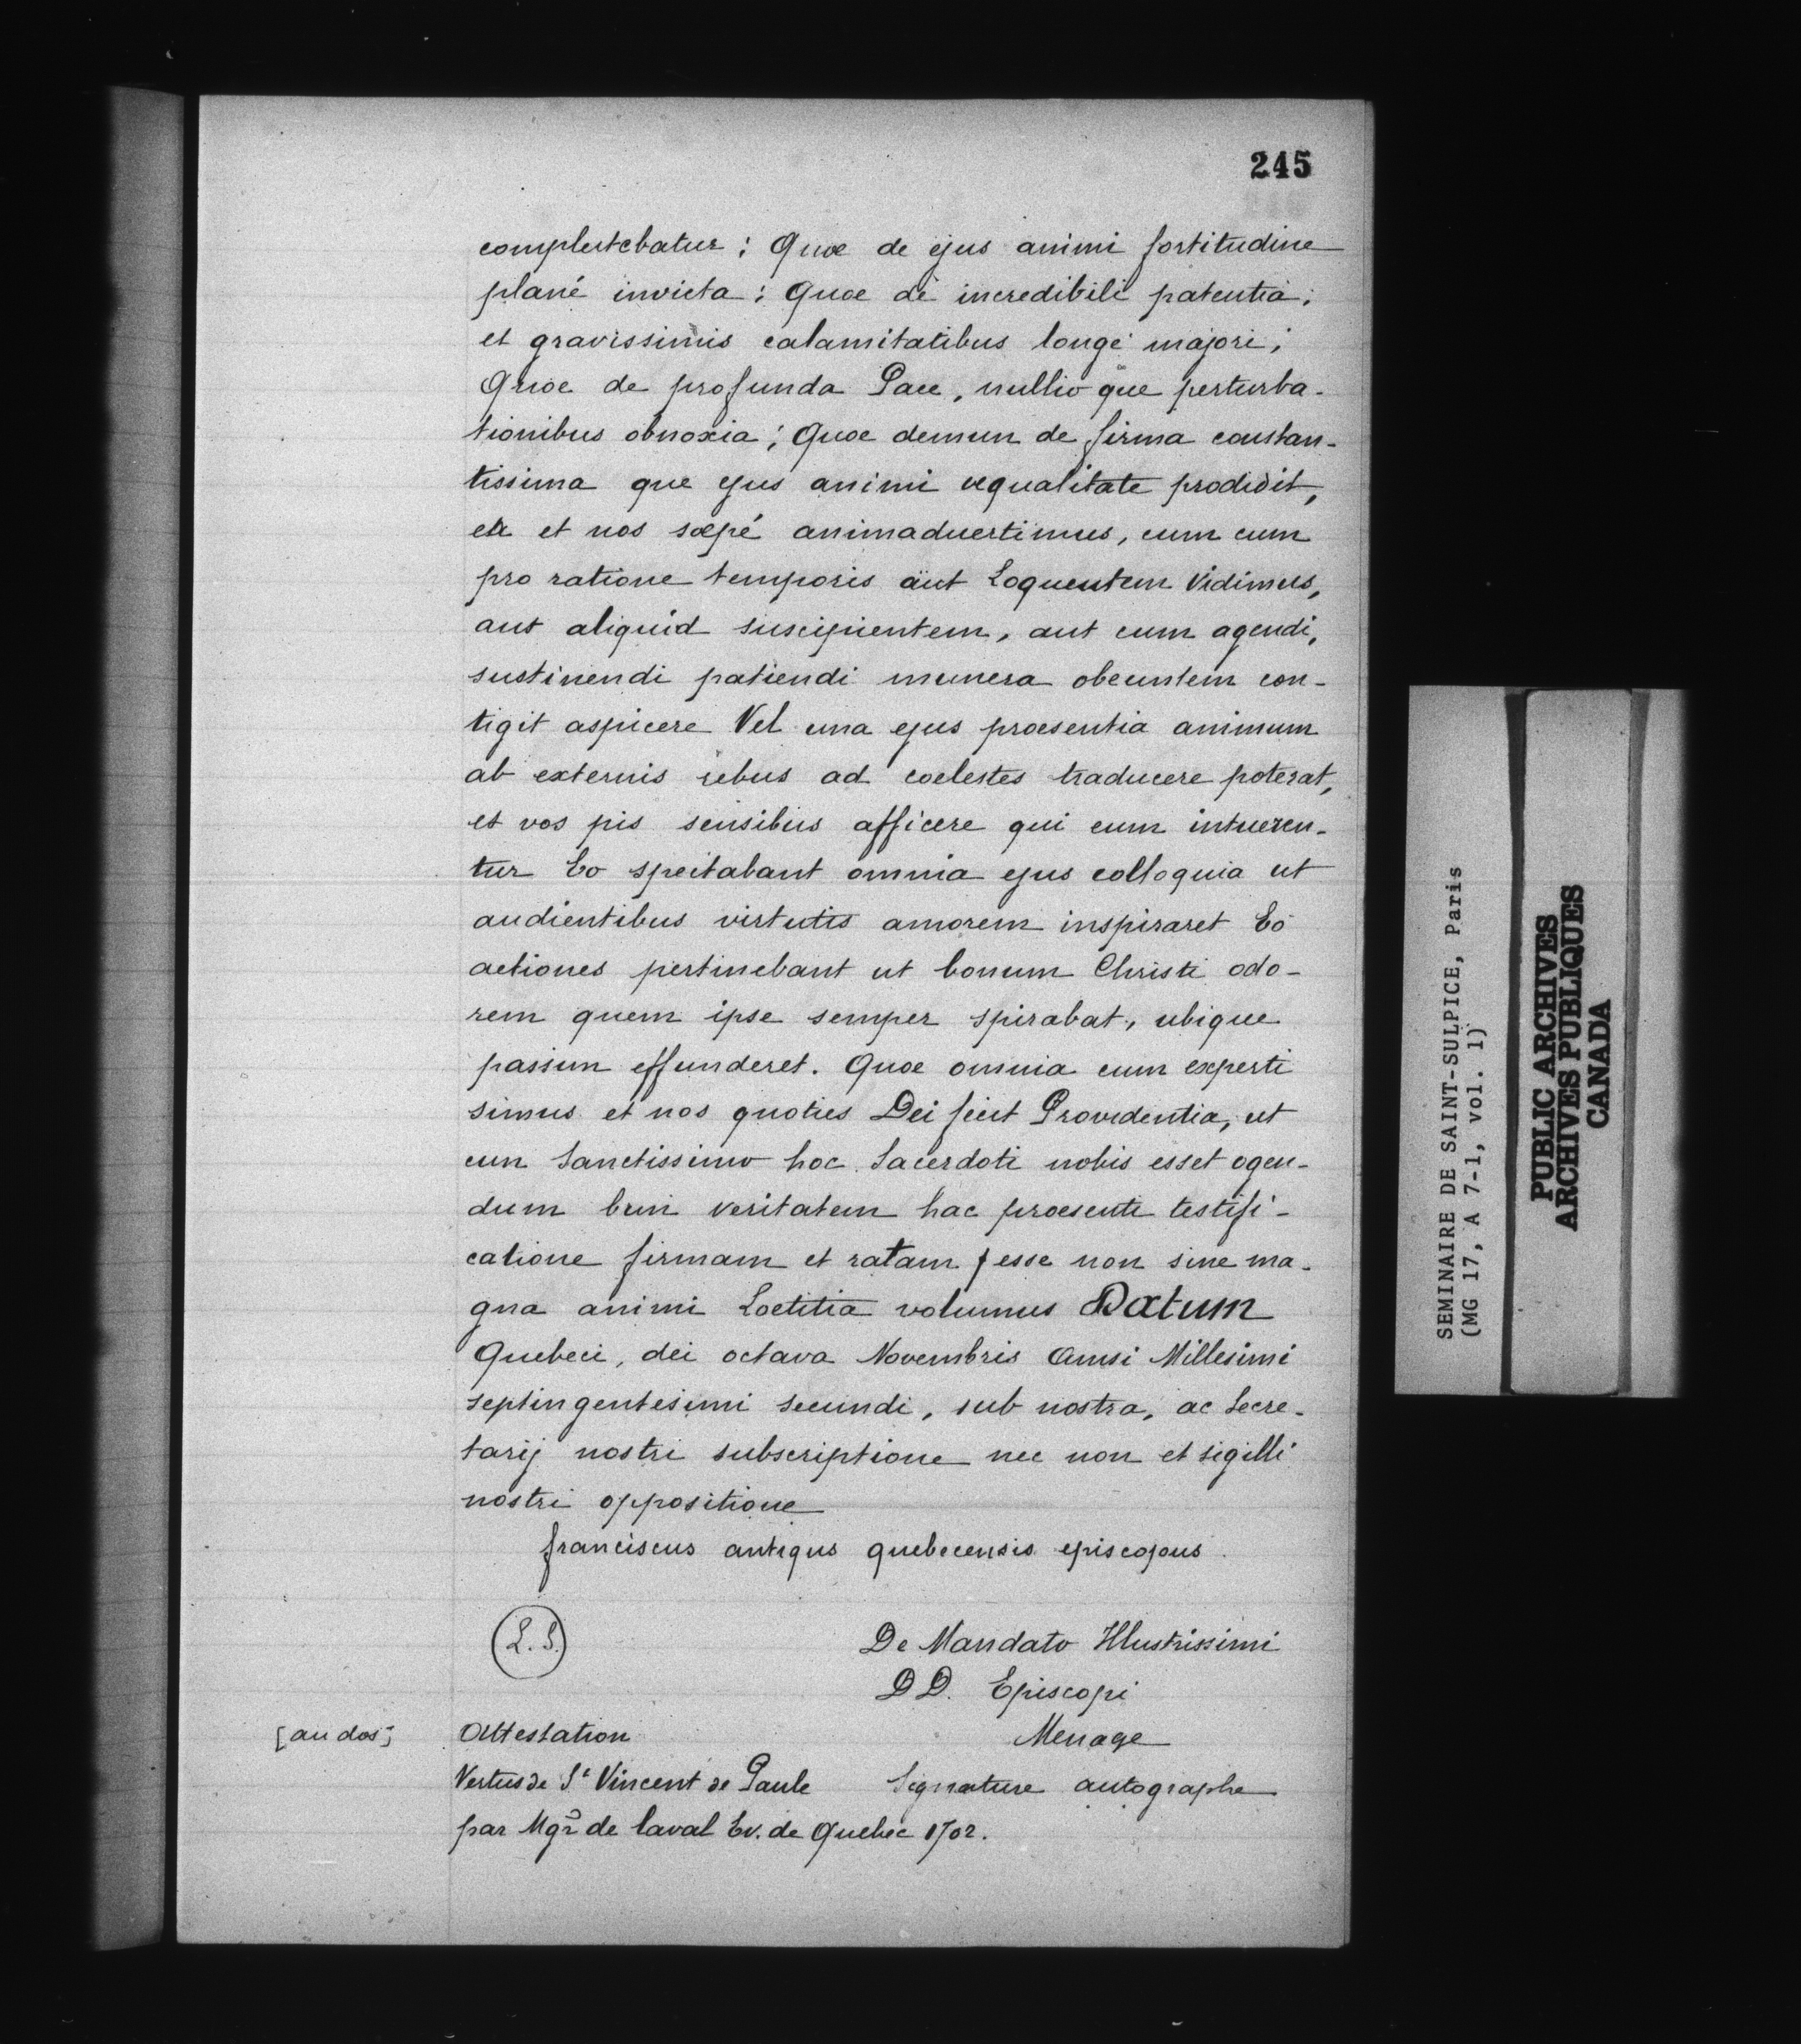 245
complectebatur ; Quæ de ejus animi fortitudine
plané invicta ; Quæ de incredibili patentia ;
et gravissimis calamitatibus longé majori ;
Quæ de profunda Pace, nullis que perturba-
tionibus obnoxia ; Quæ demum de firma constan-
tissima que ejus animi æqualitate prodidit,
ea et nos sæpé animadvertimus, cum eum
pro ratione temporis aut Loquentem Vidimus,
aut aliquid suscipientem, aut eum agendi,
sustinendi patiendi munera obeuntem con-
tigit aspicere Vel una ejus præsentia animum
ab externis rebus ad cœlestes traducere poterat,
et vos pis sensibus afficere qui eum intueren-
tur Eo spectabant omnia ejus colloquia ut
audientibus virtutis amorem inspiraret Eó
actiones pertinebant ut bonum Christi odo-
rem quem ipse semper spirabat, ubique
passim effunderet. Quæ omnia cum experti
simus et nos quoties Dei fecit Providentia, ut
cum Sanctissimo hoc Sacerdoti nobis esset agen-
dum veritatem hac præsenti testifi-
catione firmam et ratam esse non sine ma-
gna animi Lætitia volumus Datum
Quebeci, dei octava Novembris Anni Millesimi
septingentesimi secundi, sub nostra, ac Secre-
tarij nostri subscriptione nec non et sigilli
nostri oppositione
franciscus antiqus quebecensis episcopus.
L. S.
De Mandato Illustrissimi
DD. Episcopi
[au dos] Attestation
Menage
Vertus de St Vincent de Paule
Signature autographe
par Mgr de laval Ev. de Quebec 1702.
SEMINAIRE DE SAINT-SULPICE, Paris
(MG 17, A 7-1, vol. 1)
PUBLIC ARCHIVES
ARCHIVES PUBLIQUES
CANADA